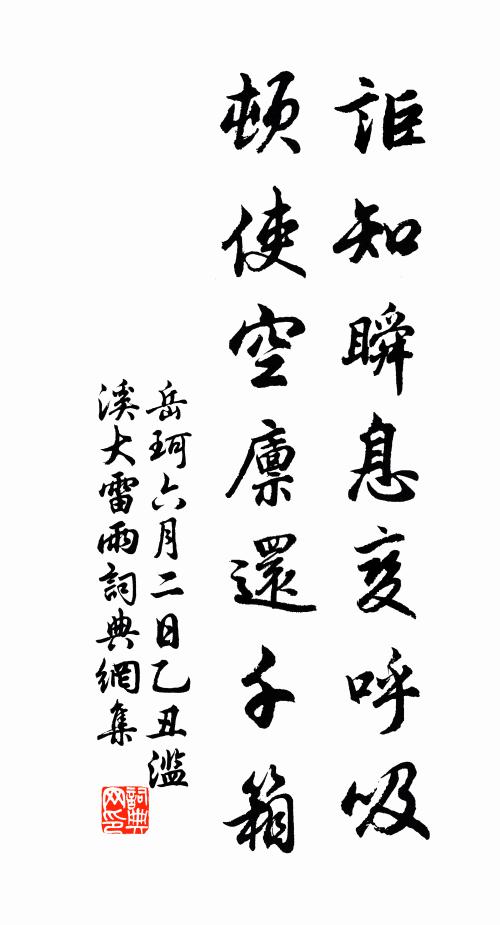 詎知瞬息變呼吸
頓使空廪還千箱
岳珂六月二日乙丑濫
溪大雷雨詞典網集
詞典
网印